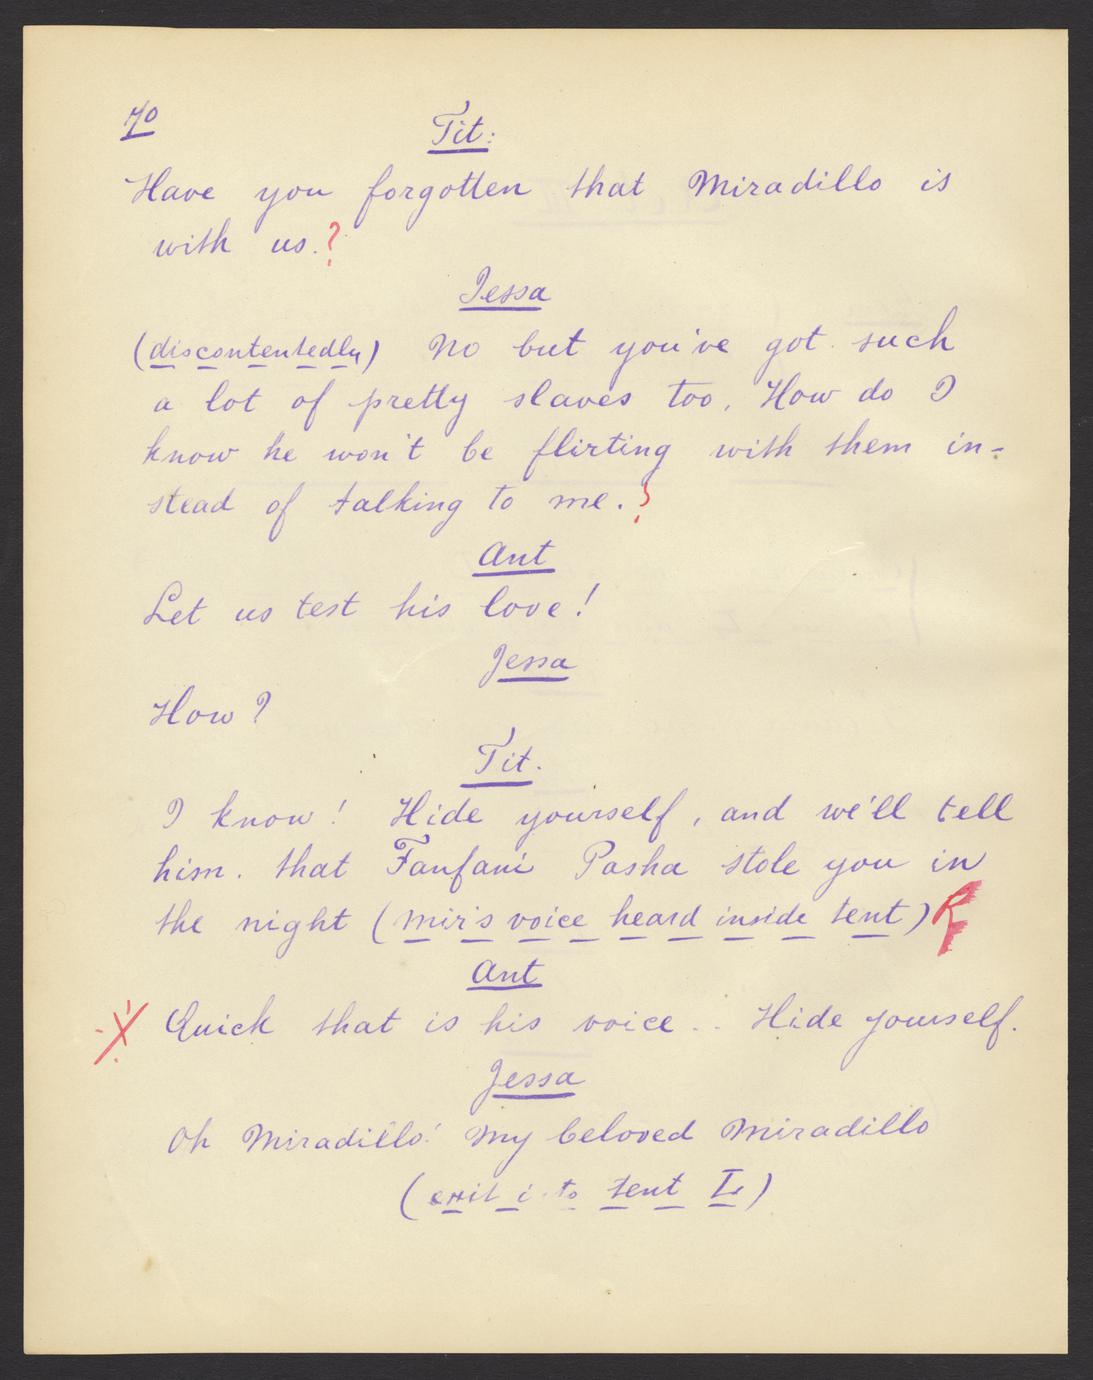 70
Tit:
Have you forgotten that Miradillo is
with us.?
Jessa
(discontentedly) No but you've got such
a lot of pretty slaves too. How do I
know he won't be flirting with them in=
stead of talking to me.?
Ant
Let us test his love!
Jessa
How?
Tit.
I know! Hide yourself, and we'll tell
him. that Fanfani Pasha stole you in
the night (mir's voice heard inside tent) R
Ant
Quick that is his voice.. Hide yourself.
Jessa
Oh Miradillo! my beloved Miradillo
(exit i to tent L)